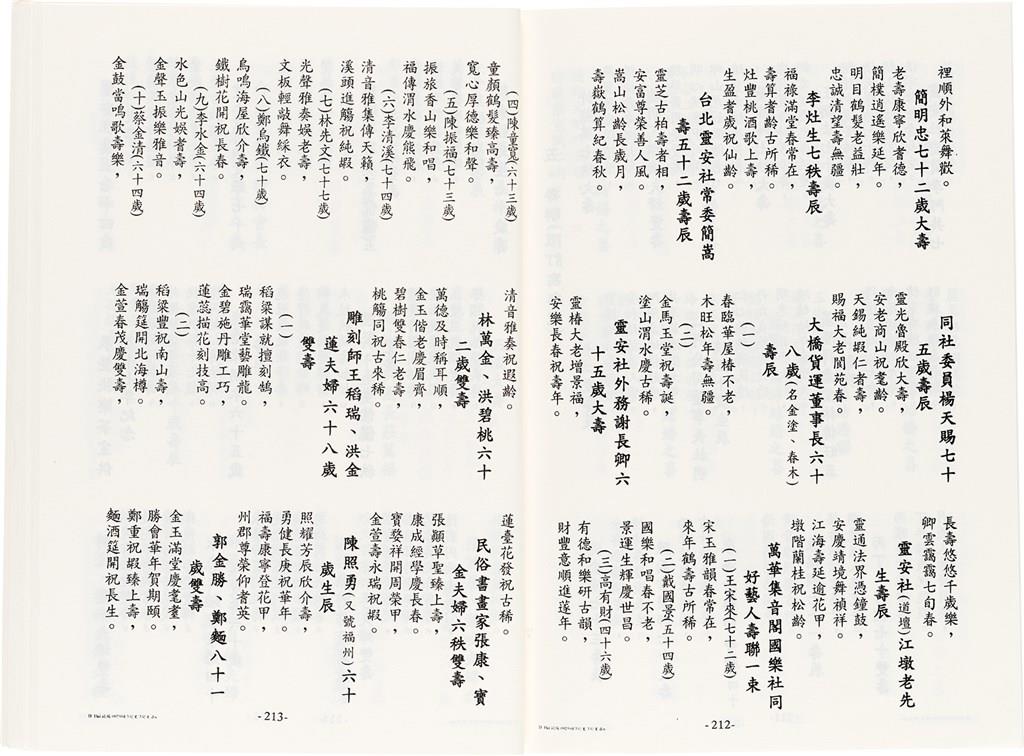 裡順外和萊舞歡。
簡明忠七十二歲大壽
老壽康寧欣耆德，
簡樸逍遙樂延年。
明目鶴髮老益壯，
忠誠清望壽無疆。
李灶生七秩壽辰
福祿滿堂春常在，
壽算耆齡古所稀。
灶豐桃酒歌上壽，
生盈耆歲祝仙齡。
台北靈安社常委簡嵩
壽五十二歲壽辰
靈芝古柏壽者相，
安富尊榮善人風。
嵩山松齡長歲月，
壽嶽鶴算紀春秋。
同社委員楊天賜七十
五歲壽辰
靈光魯殿欣大壽，
安老商山祝耄齡。
天錫純嘏仁者壽，
賜福大老閬苑春。
大橋貨運董事長六十
八歲（名金塗、春木）
壽辰
（一）
春臨華屋椿不老，
木旺松年壽無疆。
（二）
金馬玉堂祝壽誕，
塗山渭水慶古稀。
靈安社外務謝長卿六
十五歲大壽
靈椿大老增景福，
安樂長春祝壽年。
長壽悠悠千歲樂，
卿雲靄靄七旬春。
靈安社（道壇）江墩老先
生壽辰
靈通法界憑鐘鼓，
安慶靖境舞禎祥。
江海壽延逾花甲，
墩階蘭桂祝松齡。
萬華集音閣國樂社同
好藝人壽聯一束
（一）王宋來（七十二歲）
宋玉雅韻春常在，
來年鶴壽古所稀。
（二）戴國景（五十四歲）
國樂和唱春不老，
景運生輝慶世昌。
（三）高有財（四十六歲）
有德和樂研古韻，
財豐意順進蓬年。
-212-
（四）陳童寬（六十三歲）
童顏鶴髮臻高壽，
寬心厚德樂和聲。
（五）陳振福（七十三歲）
振旅香山樂和唱，
福傳渭水慶熊飛。
（六）李清溪（七十四歲）
清音雅集傳天籟，
溪頭進觴祝純嘏。
（七）林先文（七十七歲）
光聲雅奏娛老壽，
文板輕敲舞綵衣。
（八）鄭烏鐵（七十歲）
烏鳴海屋欣介壽，
鐵樹花開祝長春。
（九）李水金（六十四歲）
水色山光娛耆壽，
金聲玉振樂雅音。
（十）蔡金清（六十四歲）
金鼓當鳴歌壽樂，
清音雅奏祝遐齡。
林萬金、洪碧桃六十
二歲雙壽
萬德及時稱耳順，
金玉偕老慶眉齊，
碧樹雙春仁老壽，
桃觴同祝古來稀。
雕刻師王稻瑞、洪金
蓮夫婦六十八歲
雙壽
（一）
稻粱謀就擅刻鵠，
瑞靄華堂藝雕龍。
金碧施丹雕工巧，
蓮蕊描花刻技高。
（二）
稻粱豐祝南山壽，
瑞觴筵開北海樽。
金萱春茂慶雙壽，
蓮臺花發祝古稀。
民俗書畫家張康、寶
金夫婦六秩雙壽
張顛草聖臻上壽，
康成經學慶長春。
寶婺祥開周榮甲，
金萱壽永瑞祝嘏。
陳照勇（又號福州）六十
歲生辰
照耀芳辰欣介壽，
勇健長庚祝華年。
福壽康寧登花甲，
州郡尊榮仰耆英。
郭金勝、鄭麵八十一
歲雙壽
金玉滿堂慶耄耋，
勝會華年賀期頤。
鄭重祝嘏臻上壽，
麵酒筵開祝長生。
-213-